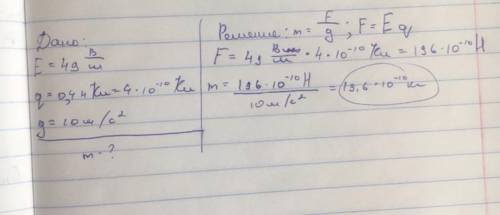 Дано:
E = 49 В/м
q = 0,44 Кл = 4 · 10⁻¹⁰ Кл
g = 10 м/с²
m - ?
Решение: m = F/g ; F = E q
F = 49 В/м · 4 · 10⁻¹⁰ Кл = 196 · 10⁻¹⁰ Н
m = 196 · 10⁻¹⁰ Н / 10 м/с² = 19,6 · 10⁻¹⁰ кг